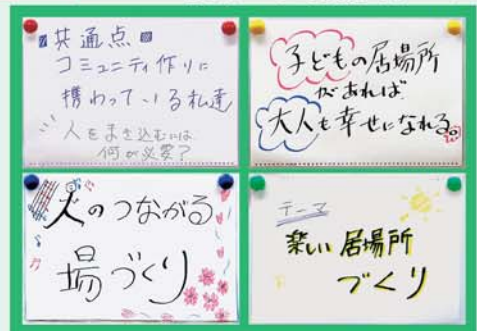 ■共通点■
コミュニティ作りに
携わっている私達
人をまき込むには
何が必要?
子どもの居場所
があれば
大人も幸せになれる。
人のつながる
場づくり
テーマ
楽しい居場所
づくり